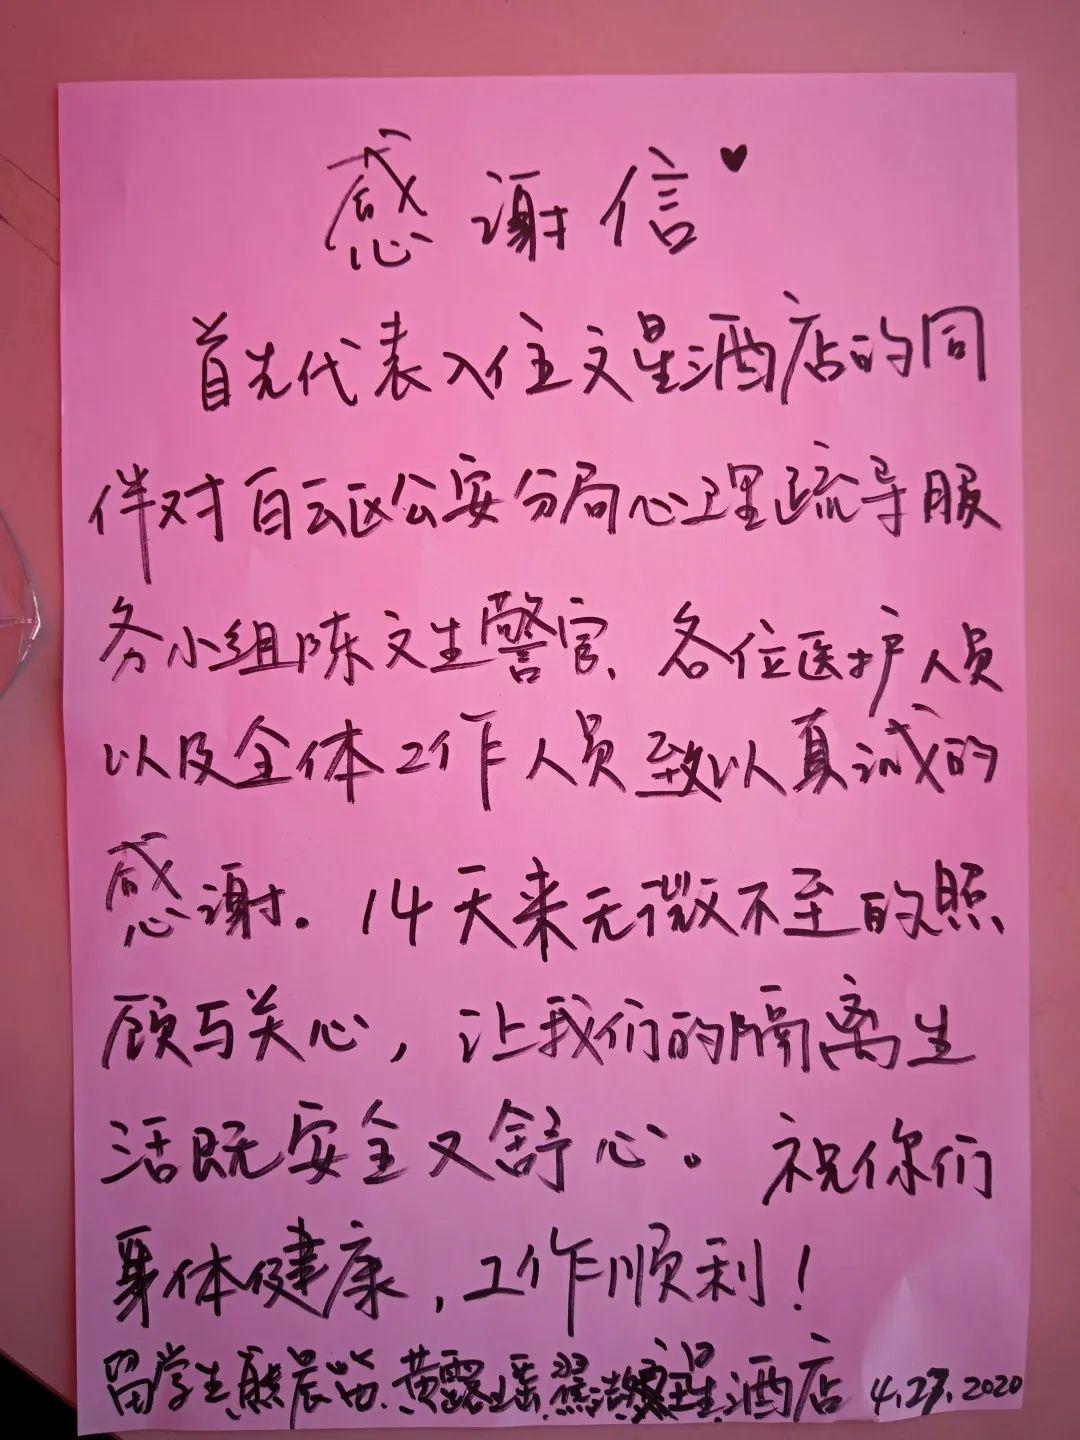 感谢信
首先代表入住文星酒店的同
伴对白云区公安分局心理疏导服
务小组陈文生警官、各位医护人员
以及全体工作人员致以真诚的
感谢。14天来无微不至的照
顾与关心，让我们的隔离生
活既安全又舒心。祝你们
身体健康，工作顺利！
留学生 黄露瑶 酒店 4.27.2020